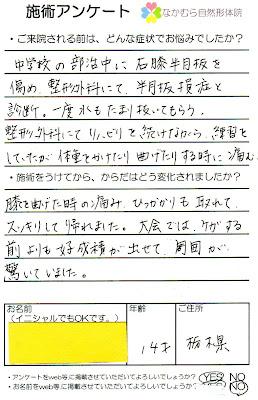 施術アンケート
なかむら自然形体院
・ご来院される前は、どんな症状でお悩みでしたか?
中学校の部活中に右膝半月板を
傷め、整形外科にて、半月板損症と
診断。一度水もたまり抜いてもらう。
整形外科にてリハビリを続けながら、練習を
していたが体重をかけたり曲げたりする時に痛む。
・施術をうけてから、からだはどう変化されましたか?
膝を曲げた時の痛み、ひっかかりも取れて、
スッキリして帰れました。大会では、ケガする
前よりも好成績が出せて、周囲が
驚いていました。
お名前
(イニシャルでもOKです。)
年齢
ご住所
14才
栃木県
・アンケートをweb等に掲載させていただいてよろしいでしょうか? YES NO
・お名前をweb等に掲載させていただいてよろしいでしょうか? NO